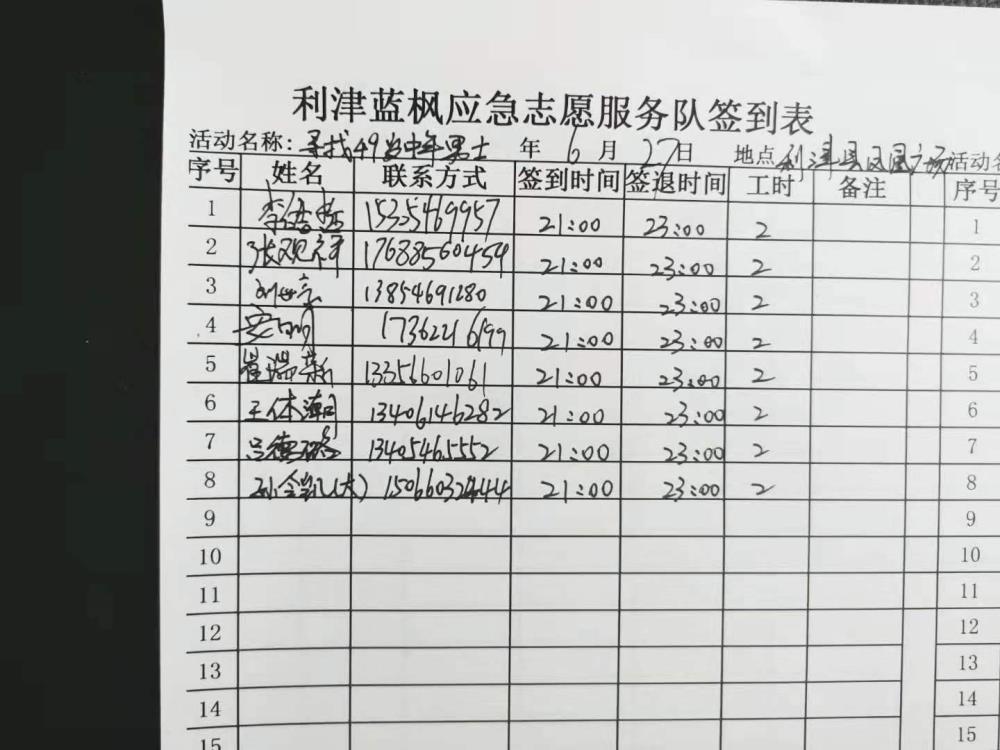 利津蓝枫应急志愿服务队签到表
活动名称：寻找49岁中年男士 年 6 月 27日 地点 利津县凤凰广场 活动名
序号 姓名 联系方式 签到时间 签退时间 工时 备注 序号
1 15325469957 21:00 23:00 2 1
2 张观祥 17685560459 21:00 23:00 2 2
3 13854691280 21:00 23:00 2 3
4 安明 17362216199 21:00 23:00 2 4
5 崔瑞新 13356601061 21:00 23:00 2 5
6 王体海 13406146282 21:00 23:00 2 6
7 吕德路 13405465552 21:00 23:00 2 7
8 孙金凯(大) 15066032444 21:00 23:00 2 8
9 9
10 10
11 11
12 12
13 13
14 14
15 15